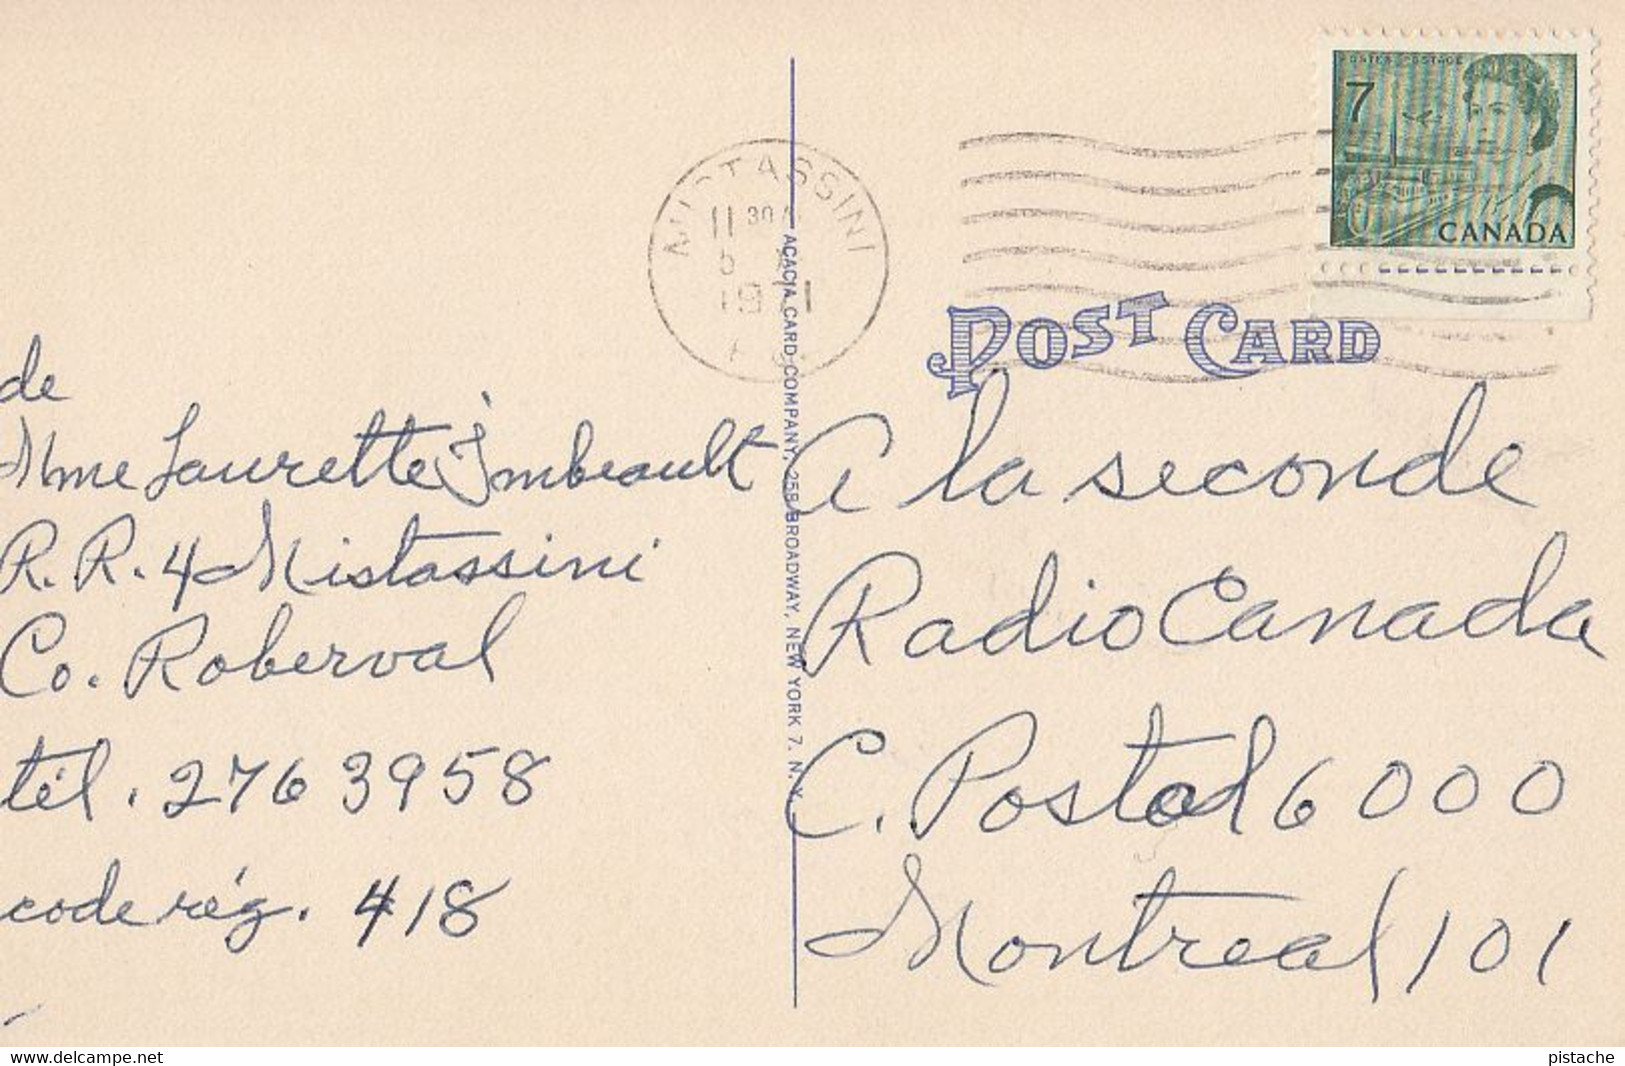 de
Mme Laurette Imbeault
R.R. 4 Mistassini
Co. Roberval
tél. 276 3958
code rég. 418
MISTASSINI
11 30
ACACIA CARD COMPANY, 258 BROADWAY, NEW YORK 7, N.Y.
POSTES POSTAGE
7
CANADA
POST CARD
A la seconde
Radio Canada
C. Postal 6000
Montreal 101
www.delcampe.net
pistache